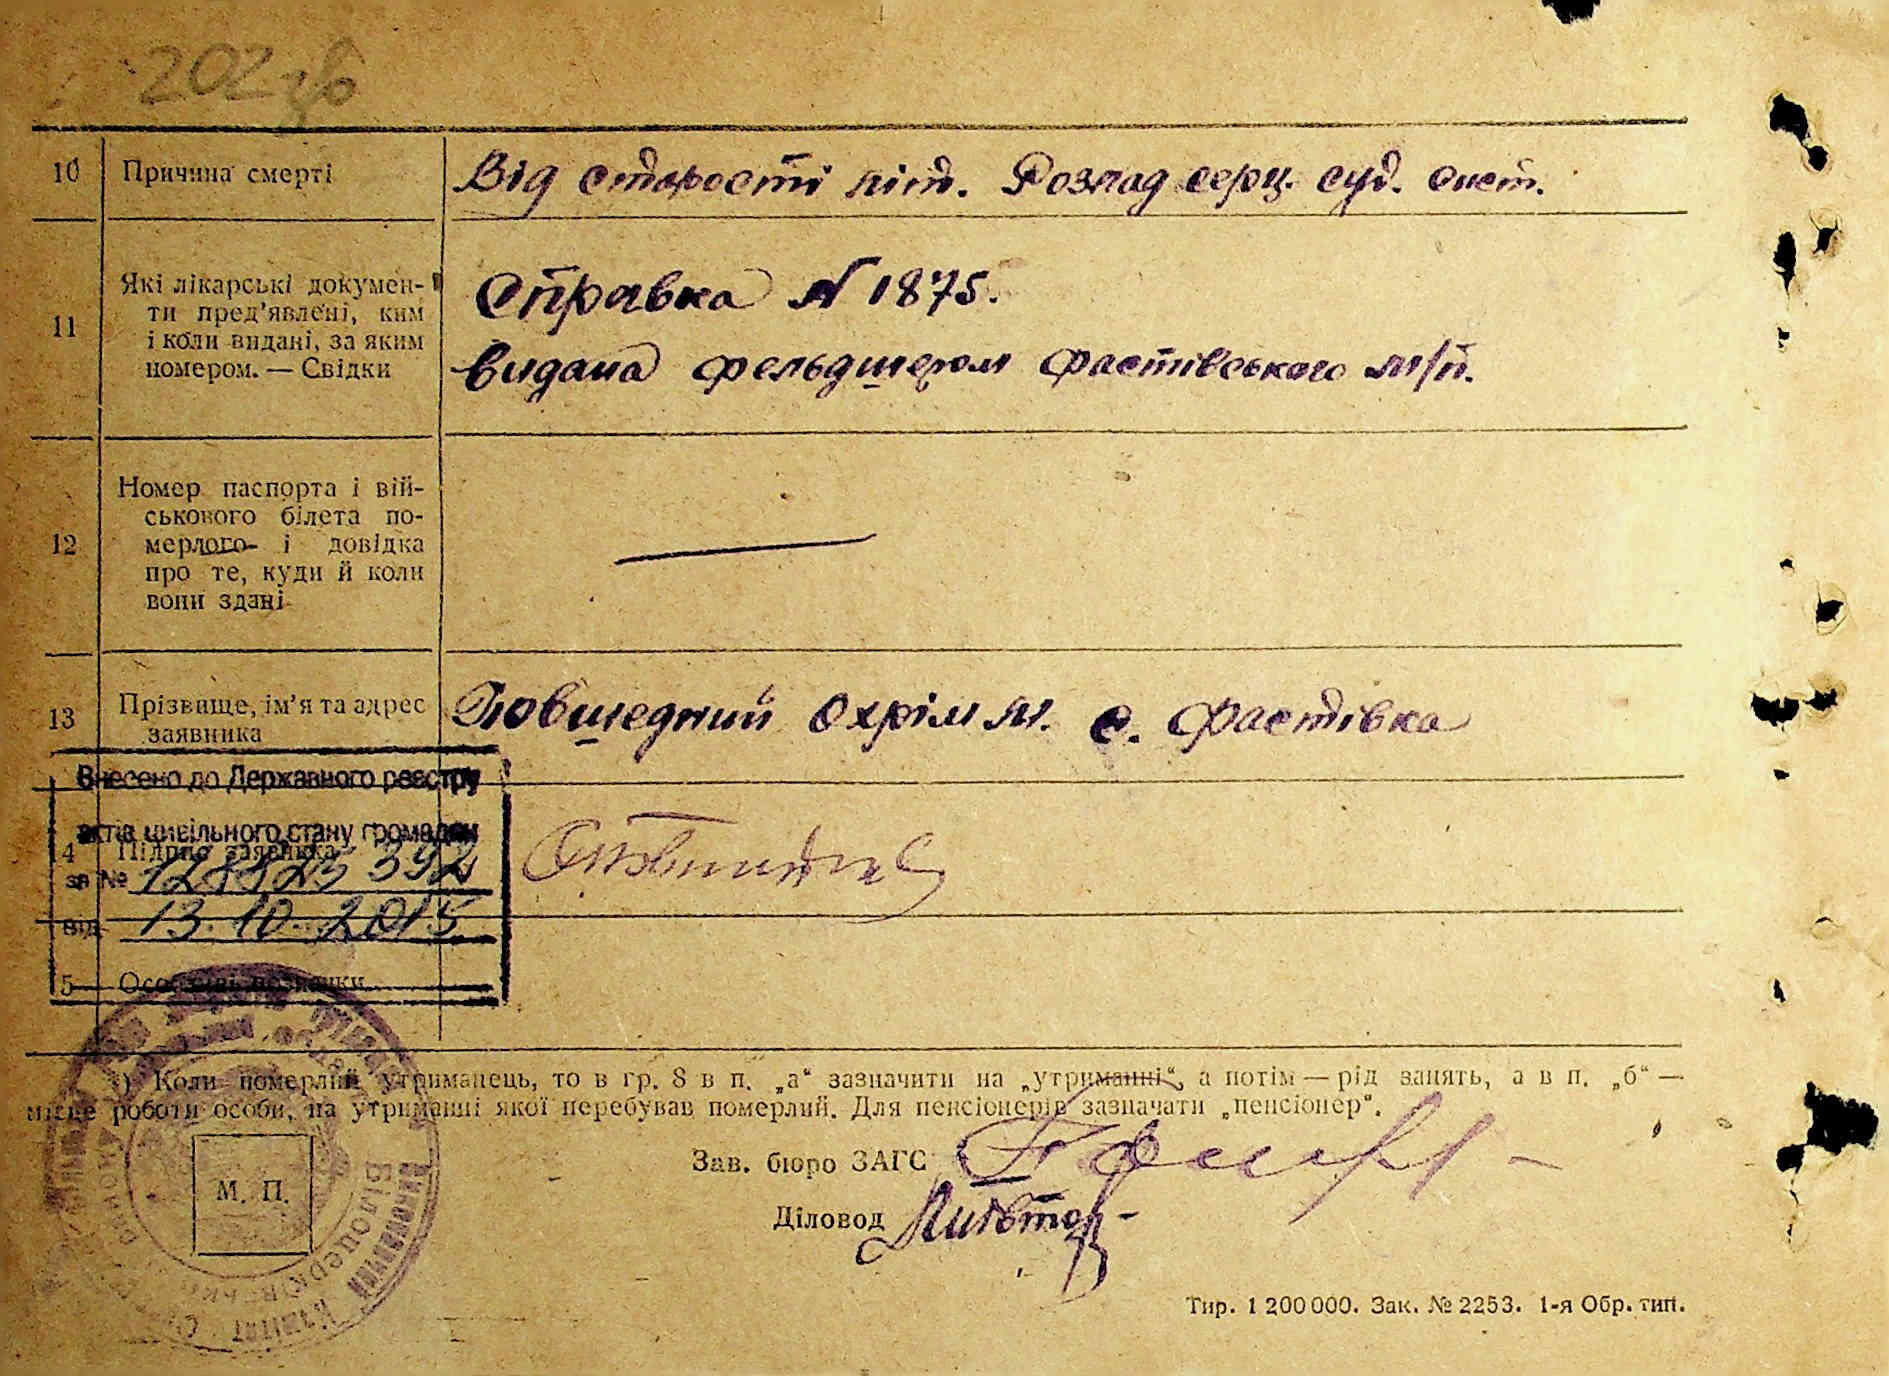 202 зв
10 Причина смерті
Від старості літ. Розлад серц. суд. сист.
11 Які лікарські докумен-
ти пред'явлені, ким
і коли видані, за яким
номером. — Свідки
Справка N 1875.
видана фельдшером Фастівського м/п.
12 Номер паспорта і вій-
ськового білета по-
мерлого і довідка
про те, куди й коли
вони здані
13 Прізвище, ім'я та адрес
заявника
Повшедний Охрім М. с. Фастівка
Внесено до Державного реєстру
актів цивільного стану громадян
4 Підпис заявника
за №
392
від 13.10.2015
5 Особливі позначки
) Коли померлий утриманець, то в гр. 8 в п. „а“ зазначити на „утриманні“, а потім — рід занять, а в п. „б“ —
місце роботи особи, на утриманні якої перебував померлий. Для пенсіонерів зазначати „пенсіонер“.
Зав. бюро ЗАГС
Діловод
М. П.
Виконавчий
Комітет
Білоцерківськ
Тир. 1 200 000. Зак. № 2253. 1-я Обр. тип.